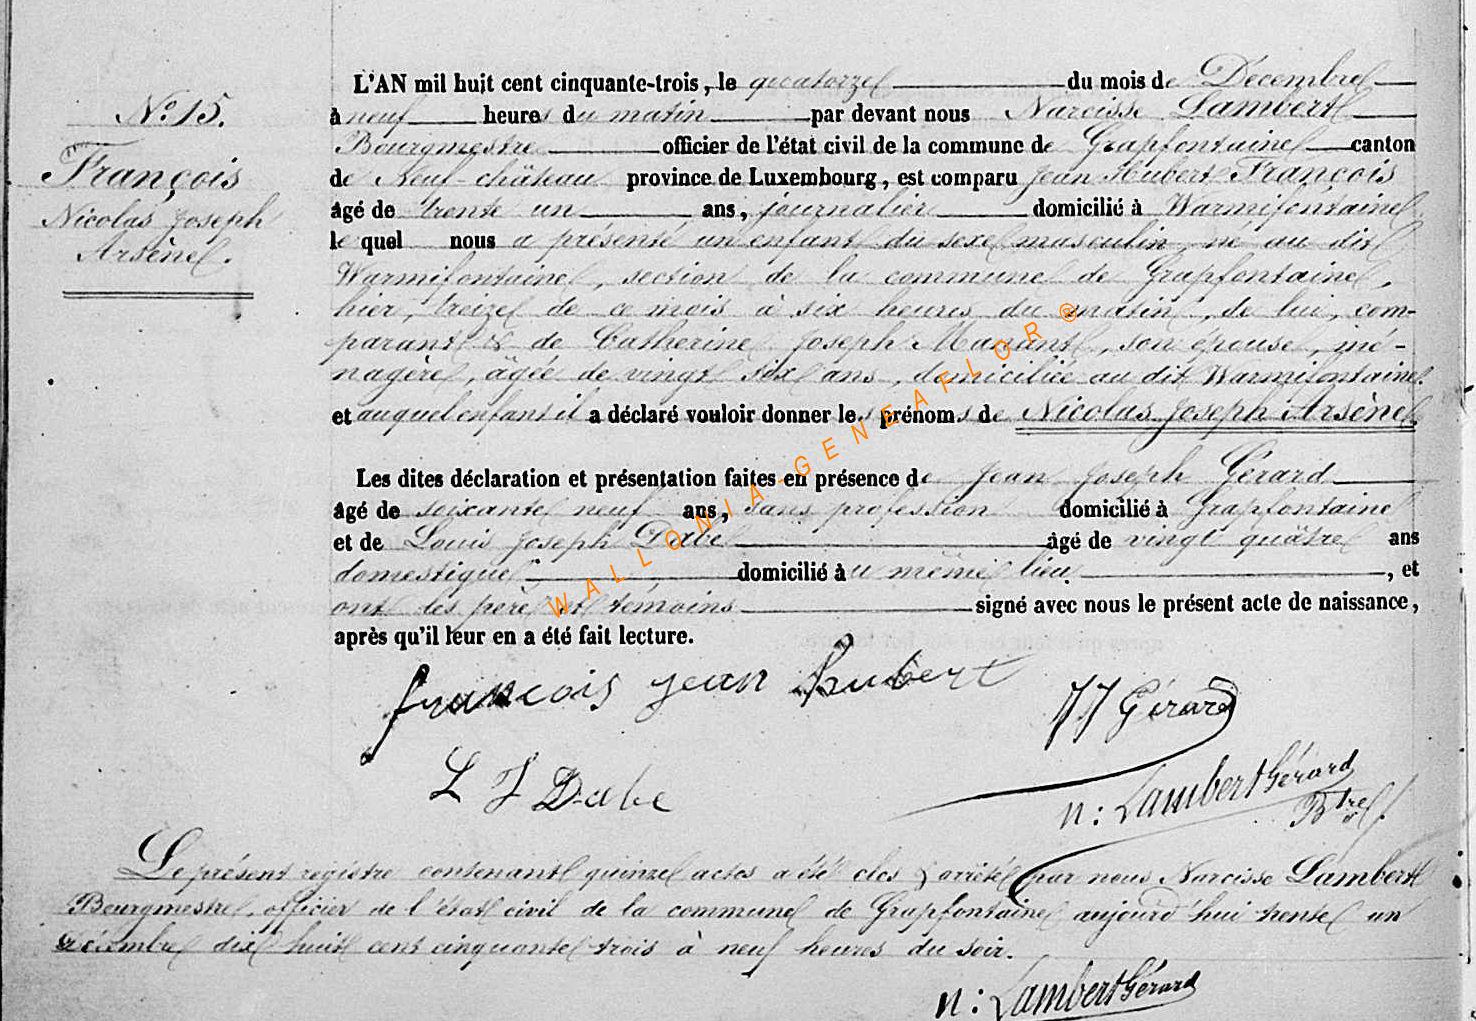 N° 15.
François
Nicolas Joseph
Arsène.
L'AN mil huit cent cinquante-trois, le quatorze du mois de Décembre
à neuf heures du matin par devant nous Narcisse Lambert
Bourgmestre officier de l'état civil de la commune de Grapfontaine canton
de Neuf-château province de Luxembourg, est comparu Jean Hubert François
âgé de trente un ans, journalier domicilié à Warmifontaine
lequel nous a présenté un enfant du sexe masculin, né au dit
Warmifontaine, section de la commune de Grapfontaine,
hier, treize de ce mois à six heures du matin, de lui, com-
parant & de Catherine Joseph Manant, son épouse, mé-
nagère, âgée de vingt six ans, domiciliée au dit Warmifontaine.
et auquel enfant il a déclaré vouloir donner les prénoms de Nicolas Joseph Arsène
Les dites déclaration et présentation faites en présence de Jean Joseph Gérard
âgé de soixante neuf ans, sans profession domicilié à Grapfontaine
et de Louis Joseph Dabe âgé de vingt quatre ans
domestique domicilié au même lieu, et
ont les père et témoins signé avec nous le présent acte de naissance,
après qu'il leur en a été fait lecture.
francois jean hubert
JJ Gérard
L J Dabe
n: Lambert Gérard
Btre
Le présent registre contenant quinze actes a été clos & arrêté par nous Narcisse Lambert
Bourgmestre, officier de l'état civil de la commune de Grapfontaine aujourd'hui trente un
décembre dix huit cent cinquante trois à neuf heures du soir.
n: Lambert Gérard
WALLONIA-GENEAFLOR ®